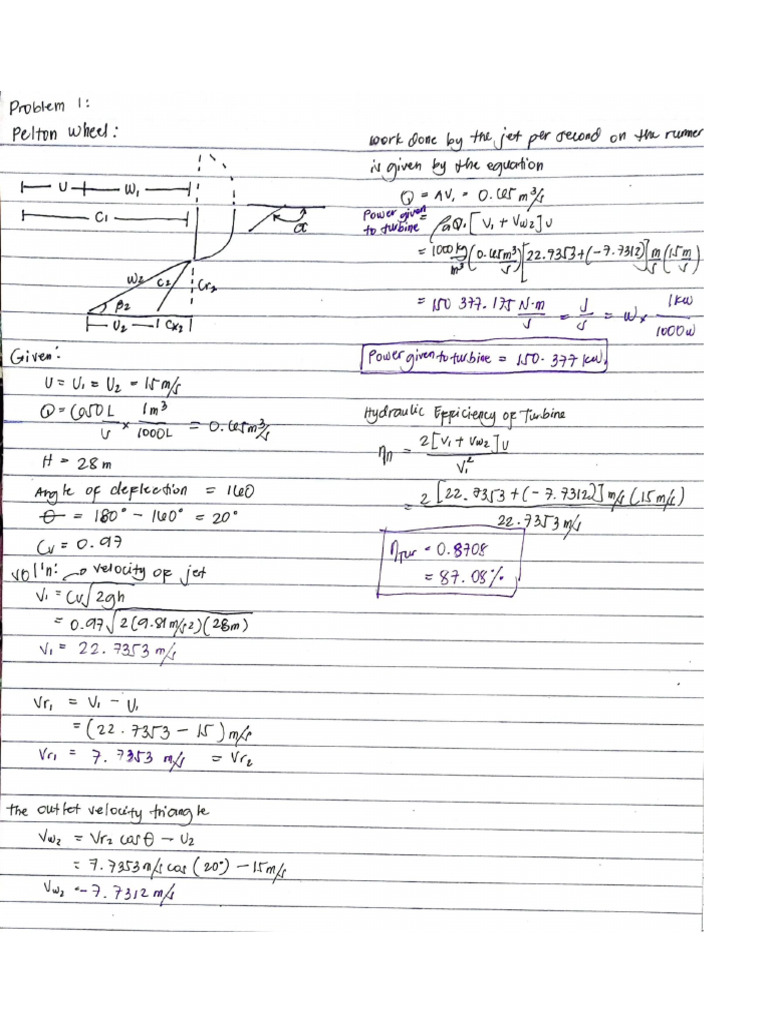 Problem 1:
Pelton Wheel:
U
W₁
C₁
α
W₂
C₂
Cr₂
β₂
U₂
Cx₂
Given:
U = U₁ = U₂ = 15 m/s
Q = 650 L/s × 1m³/1000L = 0.65 m³/s
H = 28 m
Angle of deflection = 160
θ = 180° - 160° = 20°
Cv = 0.97
sol'n: → velocity of jet
V₁ = Cv√2gh
= 0.97√2(9.81 m/s2)(28m)
V₁ = 22.7353 m/s
Vr₁ = V₁ - U₁
= (22.7353 - 15) m/s
Vr₁ = 7.7353 m/s = Vr₂
The outlet velocity triangle
Vw₂ = Vr₂ cosθ - U₂
= 7.7353 m/s cos(20°) - 15 m/s
Vw₂ = -7.7312 m/s
work done by the jet per second on the runner
is given by the equation
Q = AV₁ = 0.65 m³/s
Power given to turbine = ρaQ₁[V₁ + Vw2]U
= 1000 kg/m³ (0.65m³/s)[22.7353 + (-7.7312)] m/s (15m/s)
= 150 377.175 N·m/s = J/s = W × 1kW/1000W
Power given to turbine = 150.377 kW
Hydraulic Efficiency of Turbine
ηn = 2[V₁ + Vw2]U / V₁²
= 2[22.7353 + (-7.7312)] m/s (15 m/s) / 22.7353 m/s
ηTur = 0.8708
= 87.08%